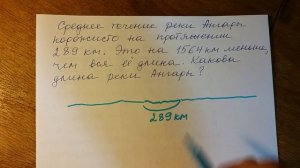 Среднее течение реки Ангары
порожисто на протяжении
289 км. Это на 1564 км меньше,
чем вся её длина. Какова
длина реки Ангары?
289 км